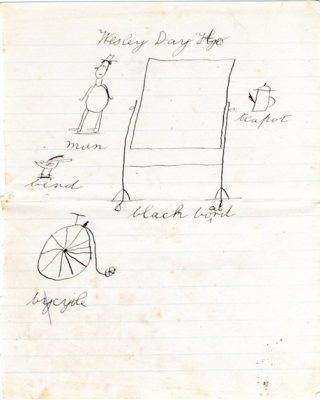 Wesley Day
man
teapot
bird
black board
bycycle